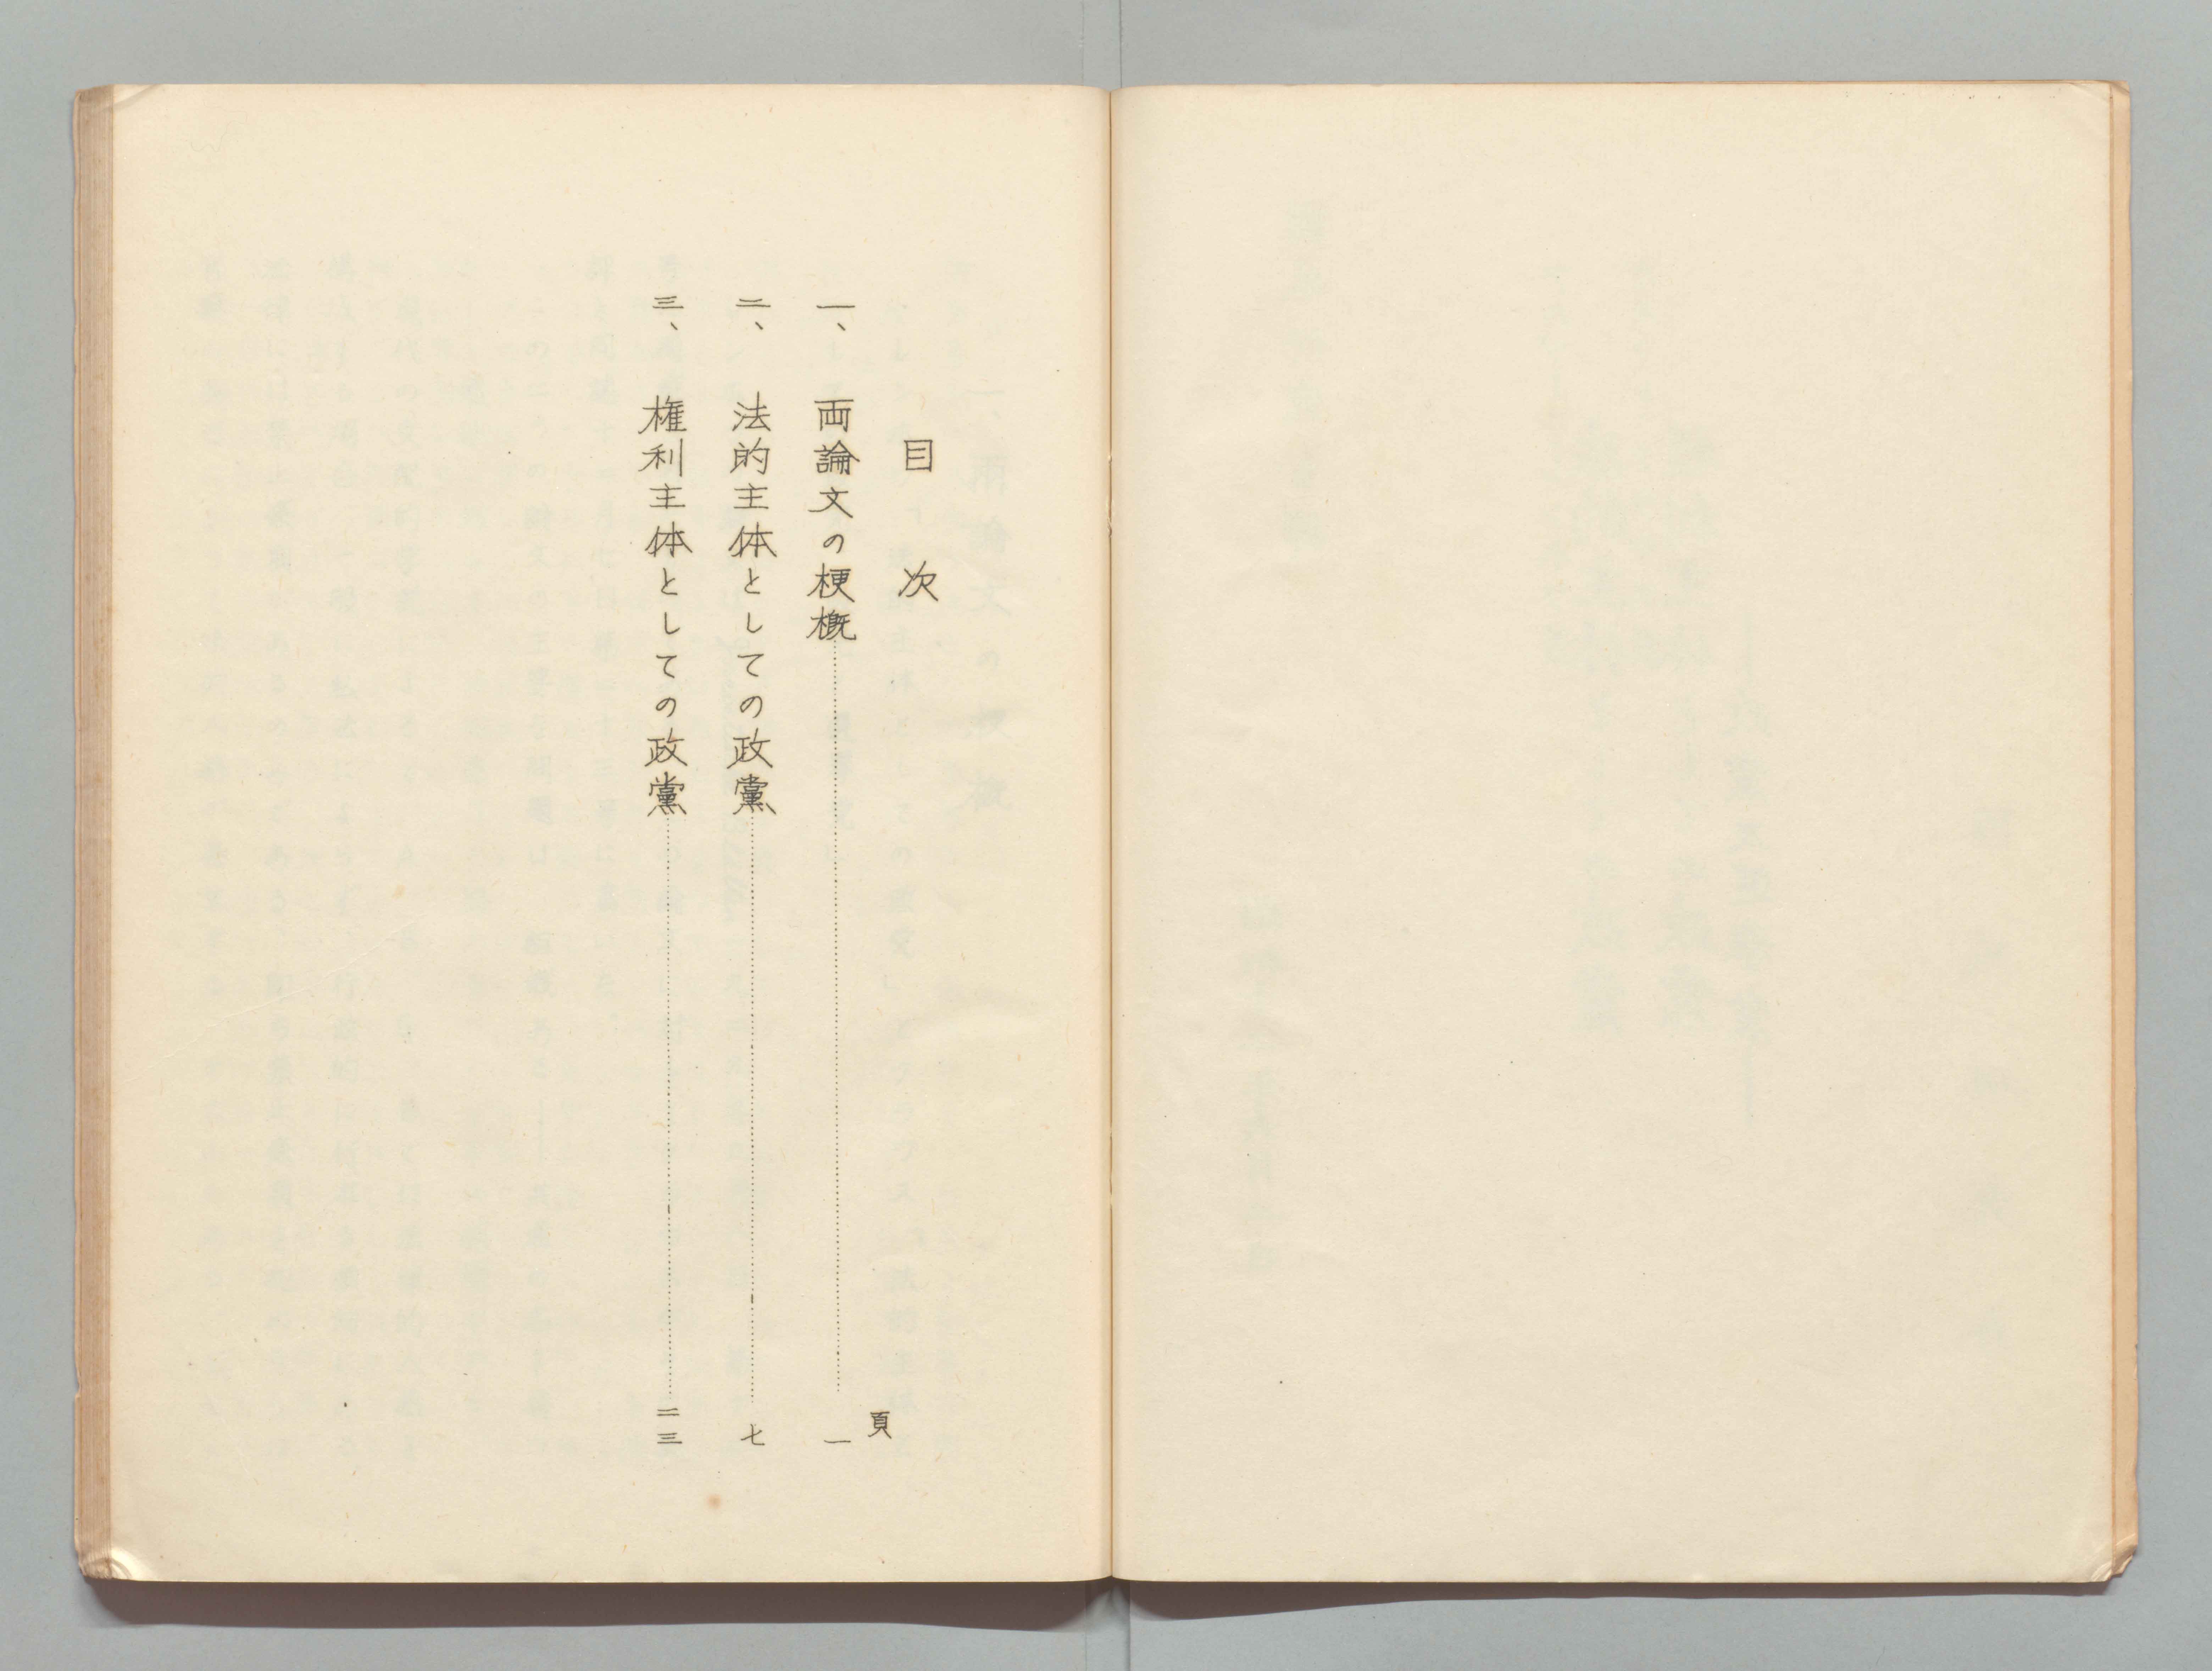 目次
頁
一、両論文の梗概…………一
二、法的主体としての政黨…………七
三、権利主体としての政黨…………二三